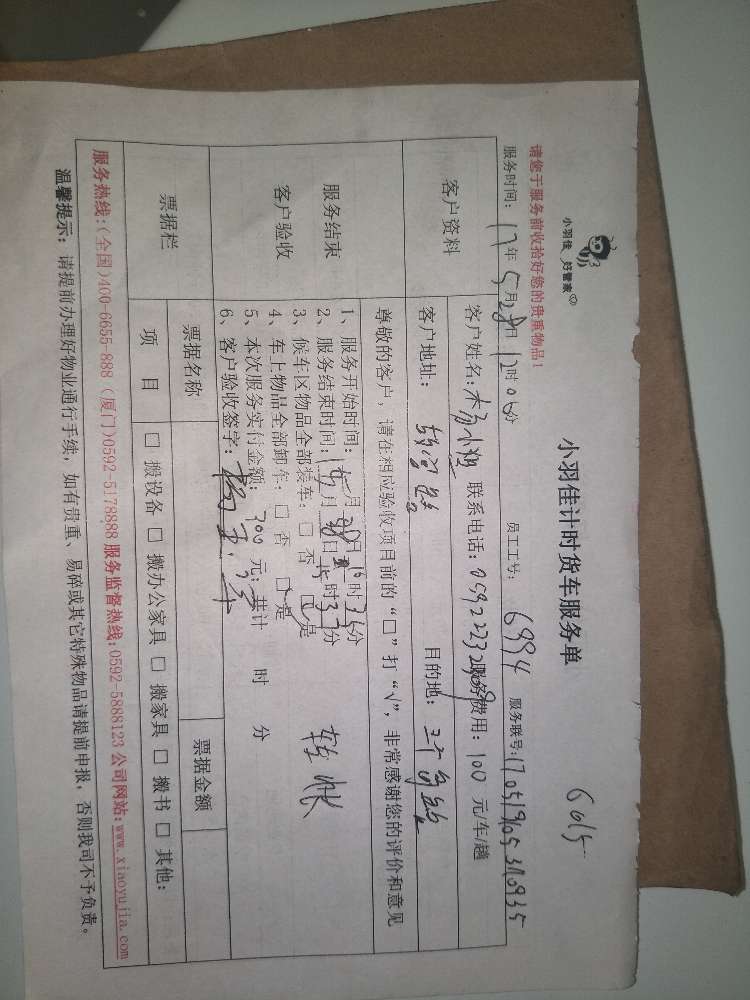 小羽佳 好管家
小羽佳计时货车服务单
6615
请您于服务前收拾好您的贵重物品！
服务时间：17年5月28日12时06分 员工工号：6994 服务联号：
客户资料
客户姓名： 联系电话： 服务费用：100元/车/趟
客户地址： 目的地：
尊敬的客户，请在相应验收项目前的“□”打“√”，非常感谢您的评价和意见
服务结束
客户验收
1、服务开始时间：
2、服务结束时间：
3、候车区物品全部装车：□ 否 □ 是
4、车上物品全部卸车：□ 否 □ 是
5、本次服务实付金额：300元；共计 时 分
6、客户验收签字：
转帐
票据栏
票据名称 票据金额
项 目 □ 搬设备 □ 搬办公家具 □ 搬家具 □ 搬书 □ 其他：
服务热线：(全国)400-6655-888 (厦门)0592-5178888 服务监督热线：0592-5888123 公司网站：www.xiaoyujia.com
温馨提示：请提前办理好物业通行手续，如有贵重、易碎或其它特殊物品请提前申报，否则我司不予负责。